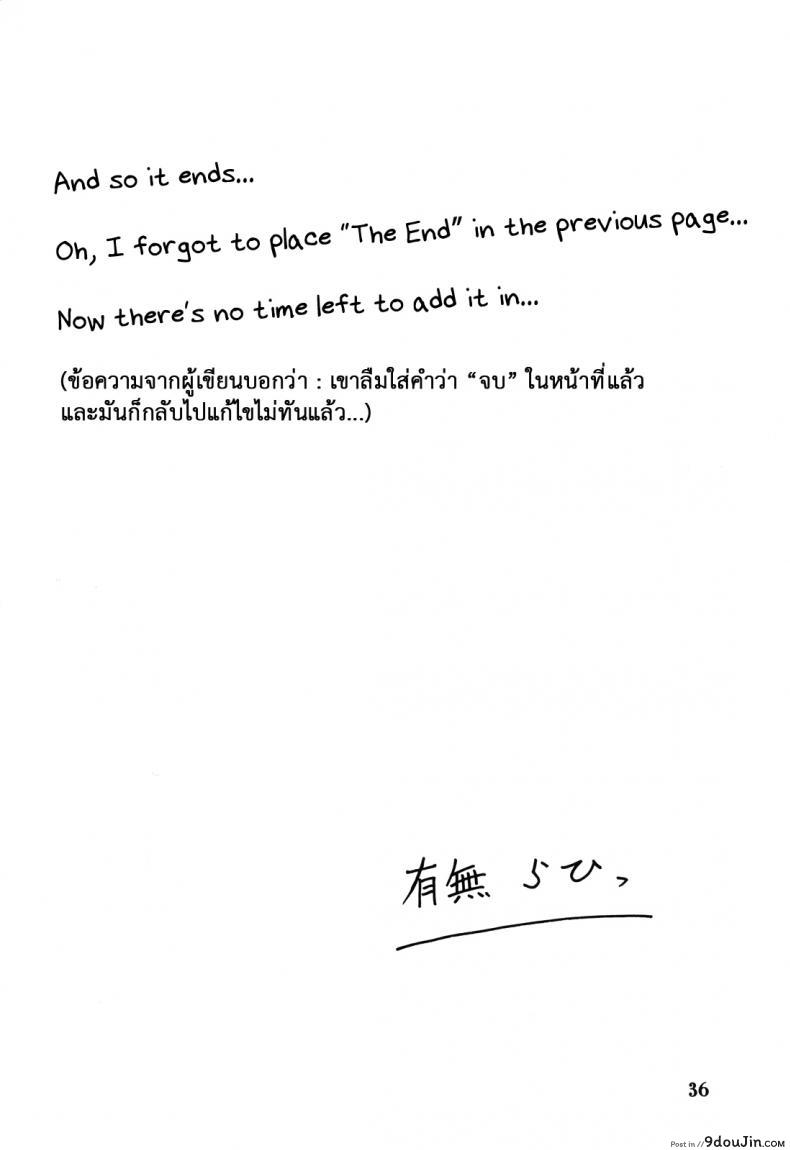 And so it ends...
Oh, I forgot to place "The End" in the previous page...
Now there's no time left to add it in...
(ข้อความจากผู้เขียนบอกว่า : เขาลืมใส่คำว่า “จบ” ในหน้าที่แล้ว
และมันก็กลับไปแก้ไขไม่ทันแล้ว...)
有無 らひっ
36
Post in // 9douJin.com